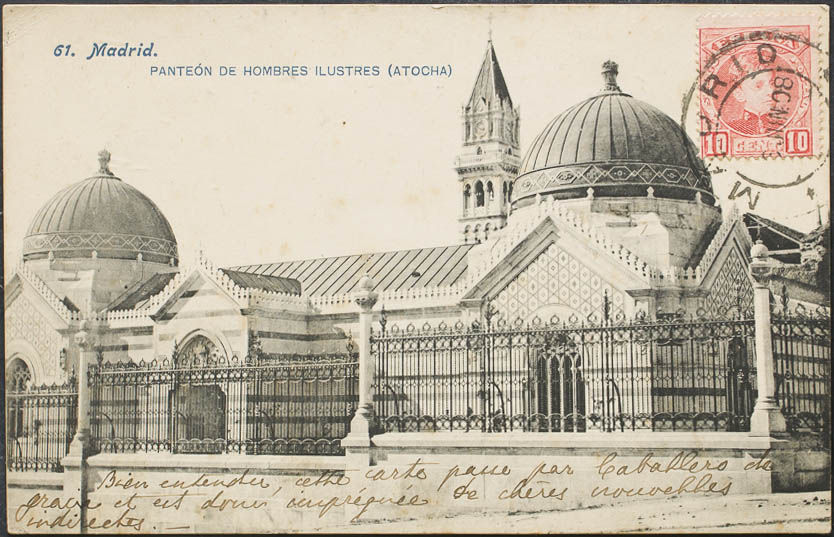 61. Madrid.
PANTEÓN DE HOMBRES ILUSTRES (ATOCHA)
MADRID
10 CENTS 10
Bien entendu, cette carte passe par Caballero de
gracia et est donc, imprégnée de chères nouvelles
indirectes. —